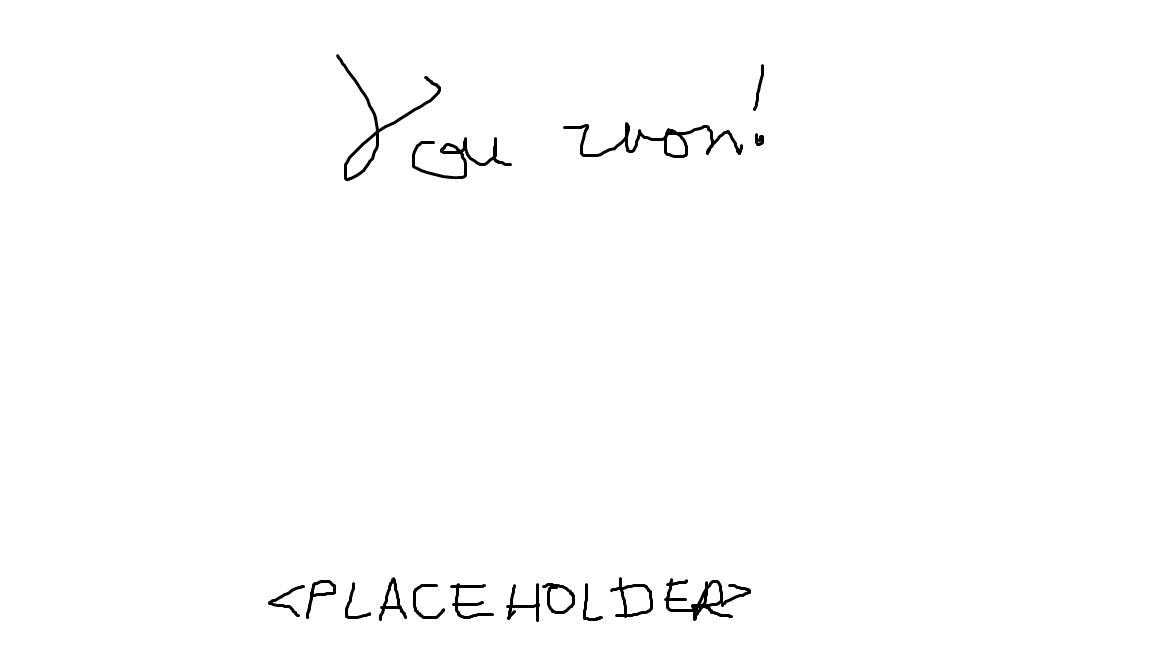 You won!
<PLACEHOLDER>